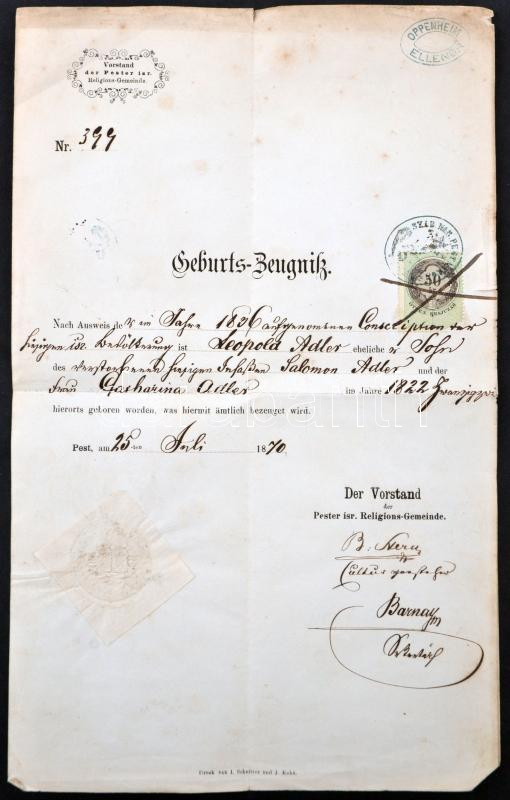 Vorstand
der Pester isr.
Religions-Gemeinde.
OPPENHEIM
ELLEN
Nr. 399
SZAB. KIR. PEST
50
Geburts-Zeugniß.
Nach Ausweis des im Jahre 1836 aufgenommenen Conscription der
hiesigen isr. Bevölkerung ist Leopold Adler eheliche r Sohn
des verstorbenen hiesigen Insaßen Salomon Adler und der
Frau Catharina Adler im Jahre 1822 Zwanzigzwei
hierorts geboren worden, was hiermit ämtlich bezeuget wird.
Pest, am 25-ten Juli 1870.
Der Vorstand
der
Pester isr. Religions-Gemeinde.
B. Stern
Culturvorsteher
Barnay
Sekretär
Druck von I. Schnitzer und J. Kohn.